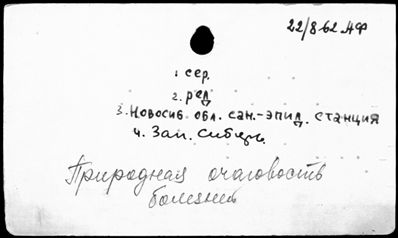 22/8 62 АФ
1 сер.
2. ред
3. Новосиб. обл. сан.-эпид. станция
4. Зап. Сибирь.
Природная очаговость
болезней